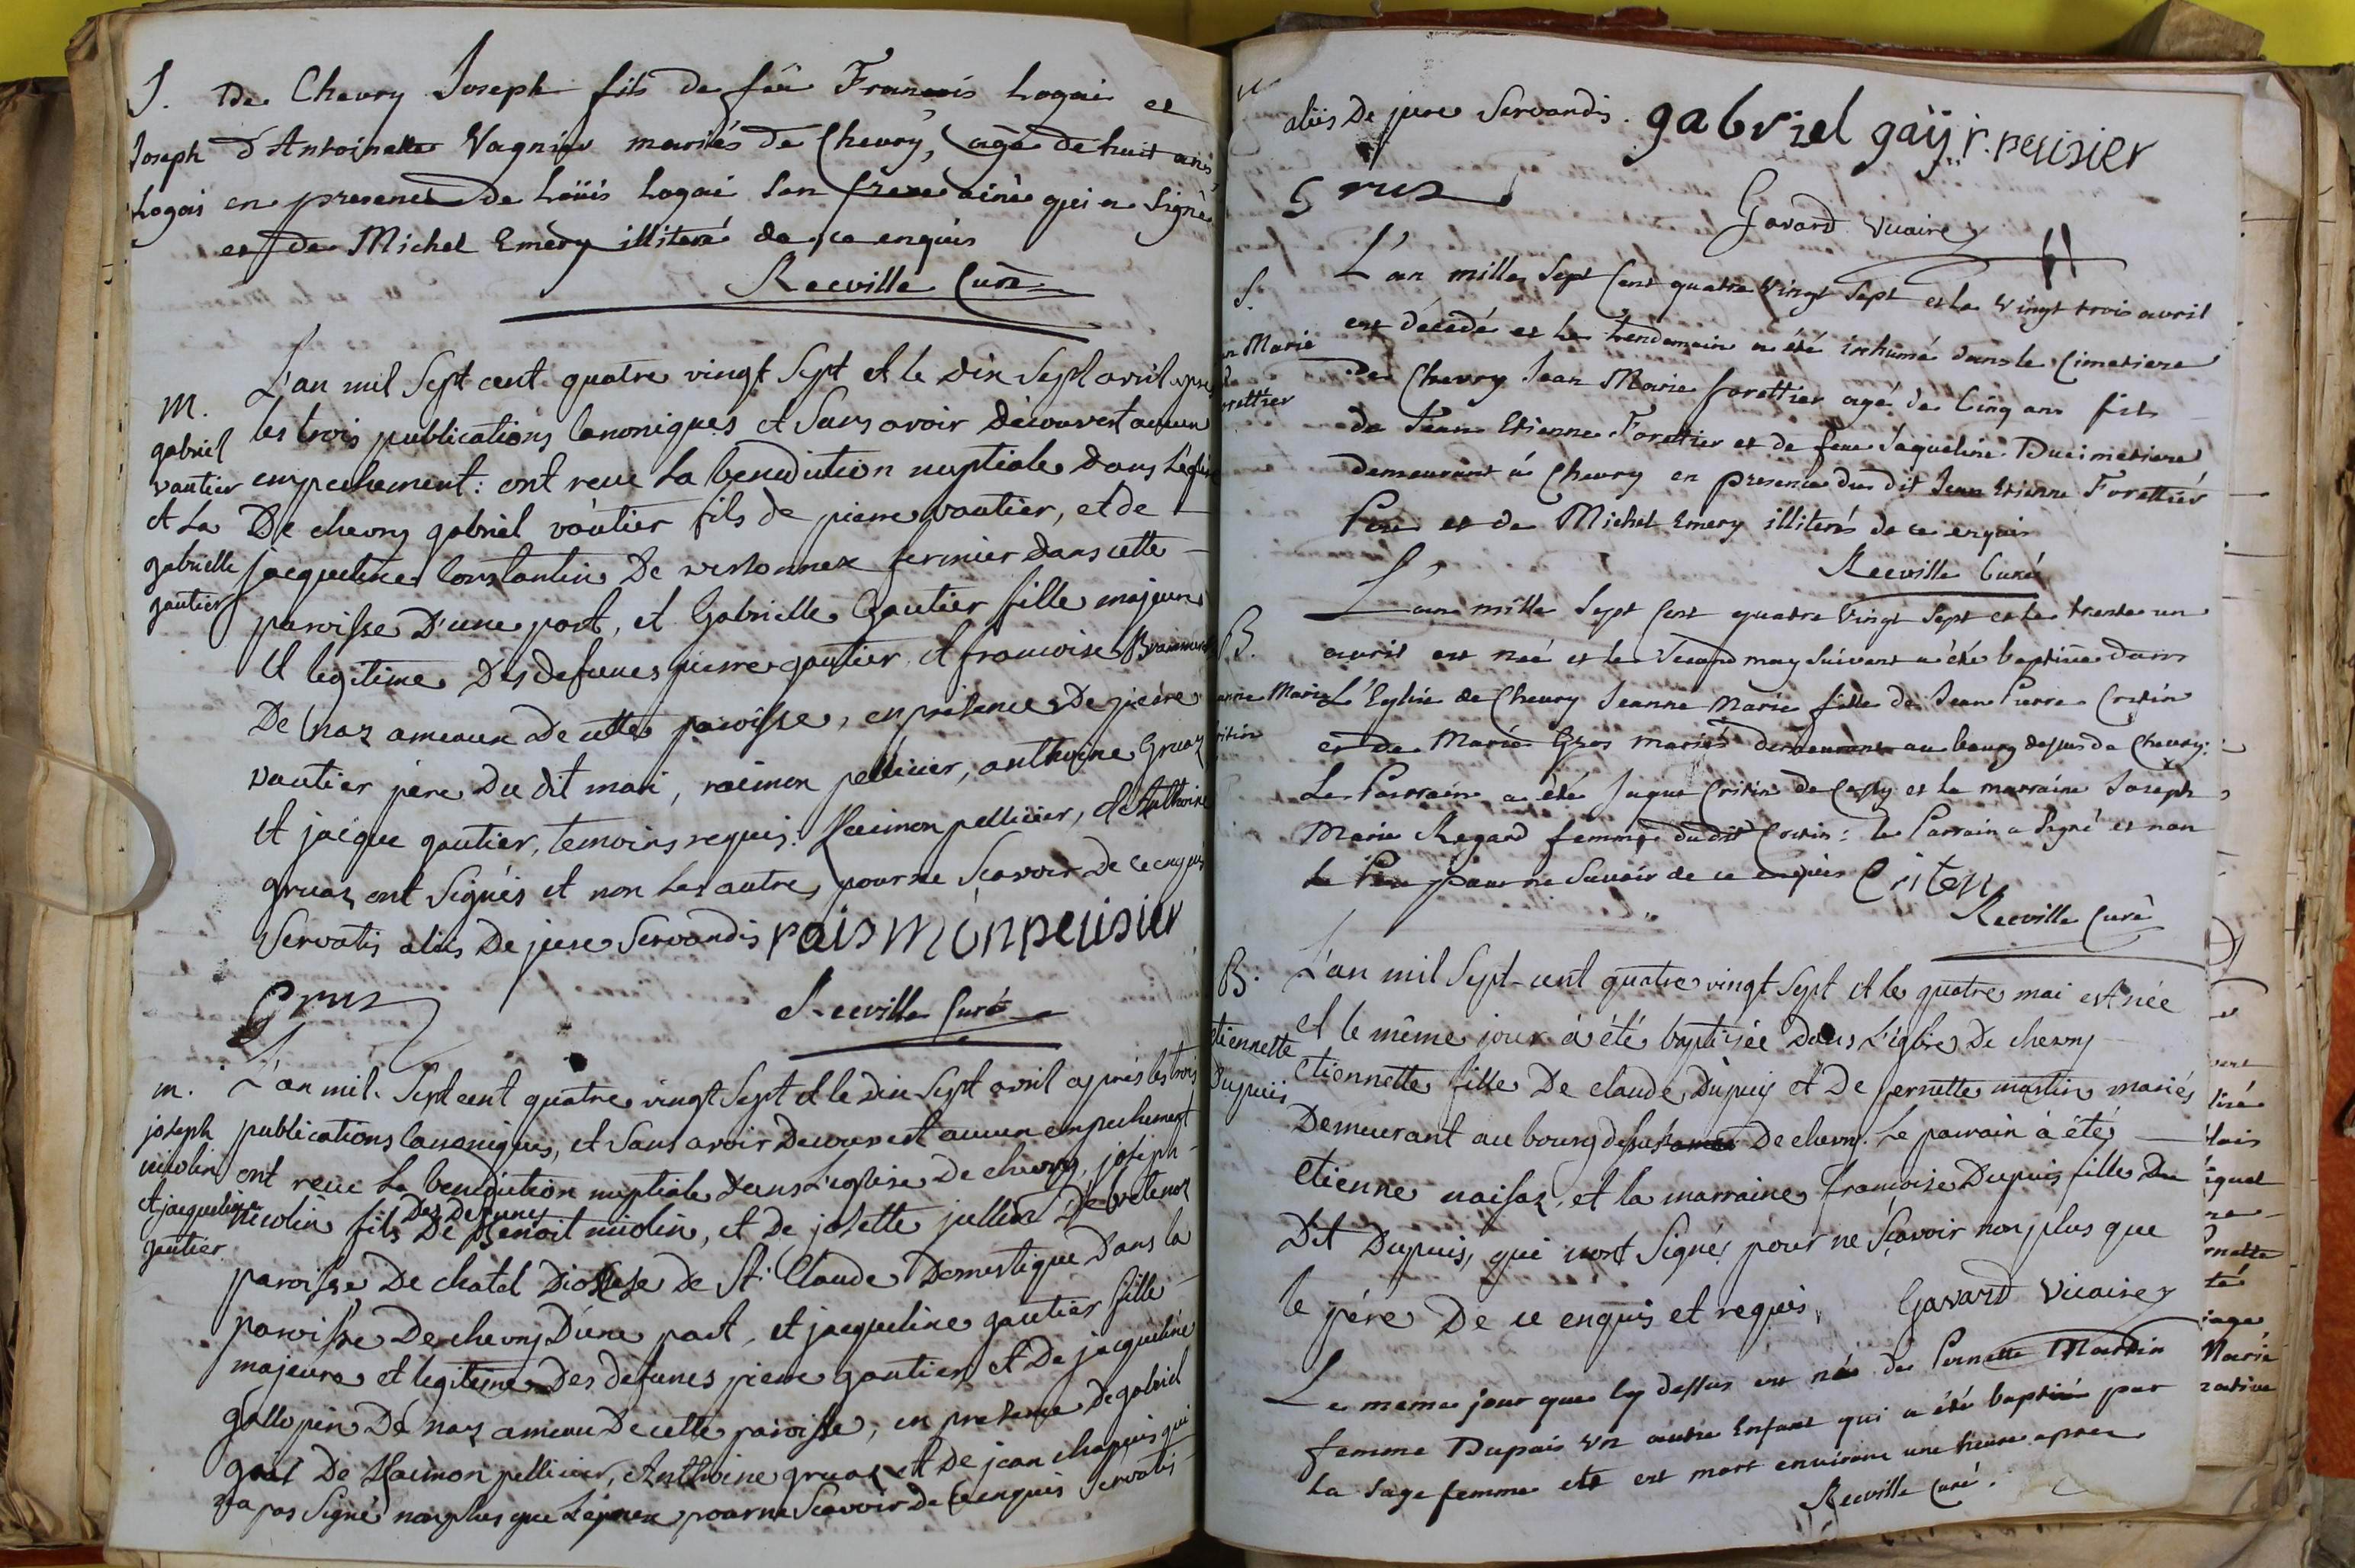 S.
Joseph
Logai
De Chevry Joseph fils de feu Francois Logai et
d'Antoinette Vagnier mariés de Chevry, agé de huit ans,
en presence de Loüis Logai son frere ainé qui a signé
et de Michel Emery illiteré de ce enquis
Reeville Curé
m.
gabriel
vautier
et La
gabrielle
gautier
L'an mil sept cent quatre vingt sept et le dix sept avril apres
les trois publications canoniques et sans avoir découvert aucun
empechement: ont reçue la benediction nuptiale dans L'église
De chevry gabriel vautier fils de pierre vautier, et de
jacqueline Constantin De versonnex fermier dans cette
paroisse D'une part, et Gabrielle Gautier fille majeure
et legitime Des defunes pierre gautier, et francoise
De naz ameaux de cette paroisse, en présence De pierre
vautier père Du dit mari, raimon pellicier, anthoine Gruaz
et jacque gautier, temoins requis. Raimon pellicier, et Anthoine
gruaz ont signés et non les autres pour ne scavoir de ce enquis
servatis aliis De jure servandis raismonpeüsier
Grus
Reeville Curé
m.
joseph
nicolin
et jacqueline
gautier
L'an mil sept cent quatre vingt sept et le dix sept avril après les trois
publications canoniques, et sans avoir decouvert aucun empechement
ont reçue la benediction nuptiale dans L'eglise De chevry, joseph
Des Defunes
nicolin fils De Benoit nicolin, et de josette De
paroisse De chatel Diosese de St. Claude Domestique dans la
paroisse De chevry D'une part, et jacqueline gautier fille
majeure et legitime Des defunes pierre gautier et De jacqueline
gallopin De naz ameau De cette paroisse, en presence De gabriel
gaüi De Raimon pellicier, Anthoine gruaz et De jean chapuis qui
na pas signé non plus que pour ne scavoir de ce enquis servatis
aliis De jure servandis. gabriel gaÿ r. peüsier
Grus
Gavard vicaire
S.
Jean Marie
Forettier
L'an mille sept cent quatre vingt sept et le vingt trois avril
est décedé et le lendemain a été inhumé dans le Cimetiere
De Chevry Jean Marie forettier agé de Cinq ans fils
de Jean Etienne Forettier et de feue Jaqueline Ducimetiere
demeurant à Chevry en presence du dit Jean Etienne Forettier
Pere et de Michel Emery illiterés de ce enquis
Reeville Curé
B.
Jeanne Marie
Critin
L'an mille sept cent quatre vingt sept et le trente un
avril est neé et le second may suivant a été baptisée dans
L'Eglise de Chevry Jeanne Marie fille de Jean Pierre Critin
et de Marie Gros mariés demeurant au bourg dessus de Chevry:
Le Parrain a été Jaque Critin de Cessy et la marraine Joseph
Marie Regard femme du dit Critin: le Parrain a signé et non
le Pere pour ne savoir de ce enquis Criten
Reeville Curé
B.
etiennette
Dupuis
L'an mil sept-cent quatre vingt sept et le quatre mai est née
et le même jour à été baptisée Dans L'église De chevry
etiennette fille De claude Dupuis et De pernette martin mariés
Demeurant au bourg dessus De chevry. Le parrain à été
etienne naisaz, et la marraine francoise Dupuis fille Du
Dit Dupuis, qui n'ont signés pour ne sçavoir non plus que
le père De ce enquis et requis. Gavard vicaire
Le meme jour que Cy dessus est née de Pernette Martin
femme Dupuis un autre Enfant qui a été baptisé par
la sage femme et est mort environ une heure apres
Reeville Curé.